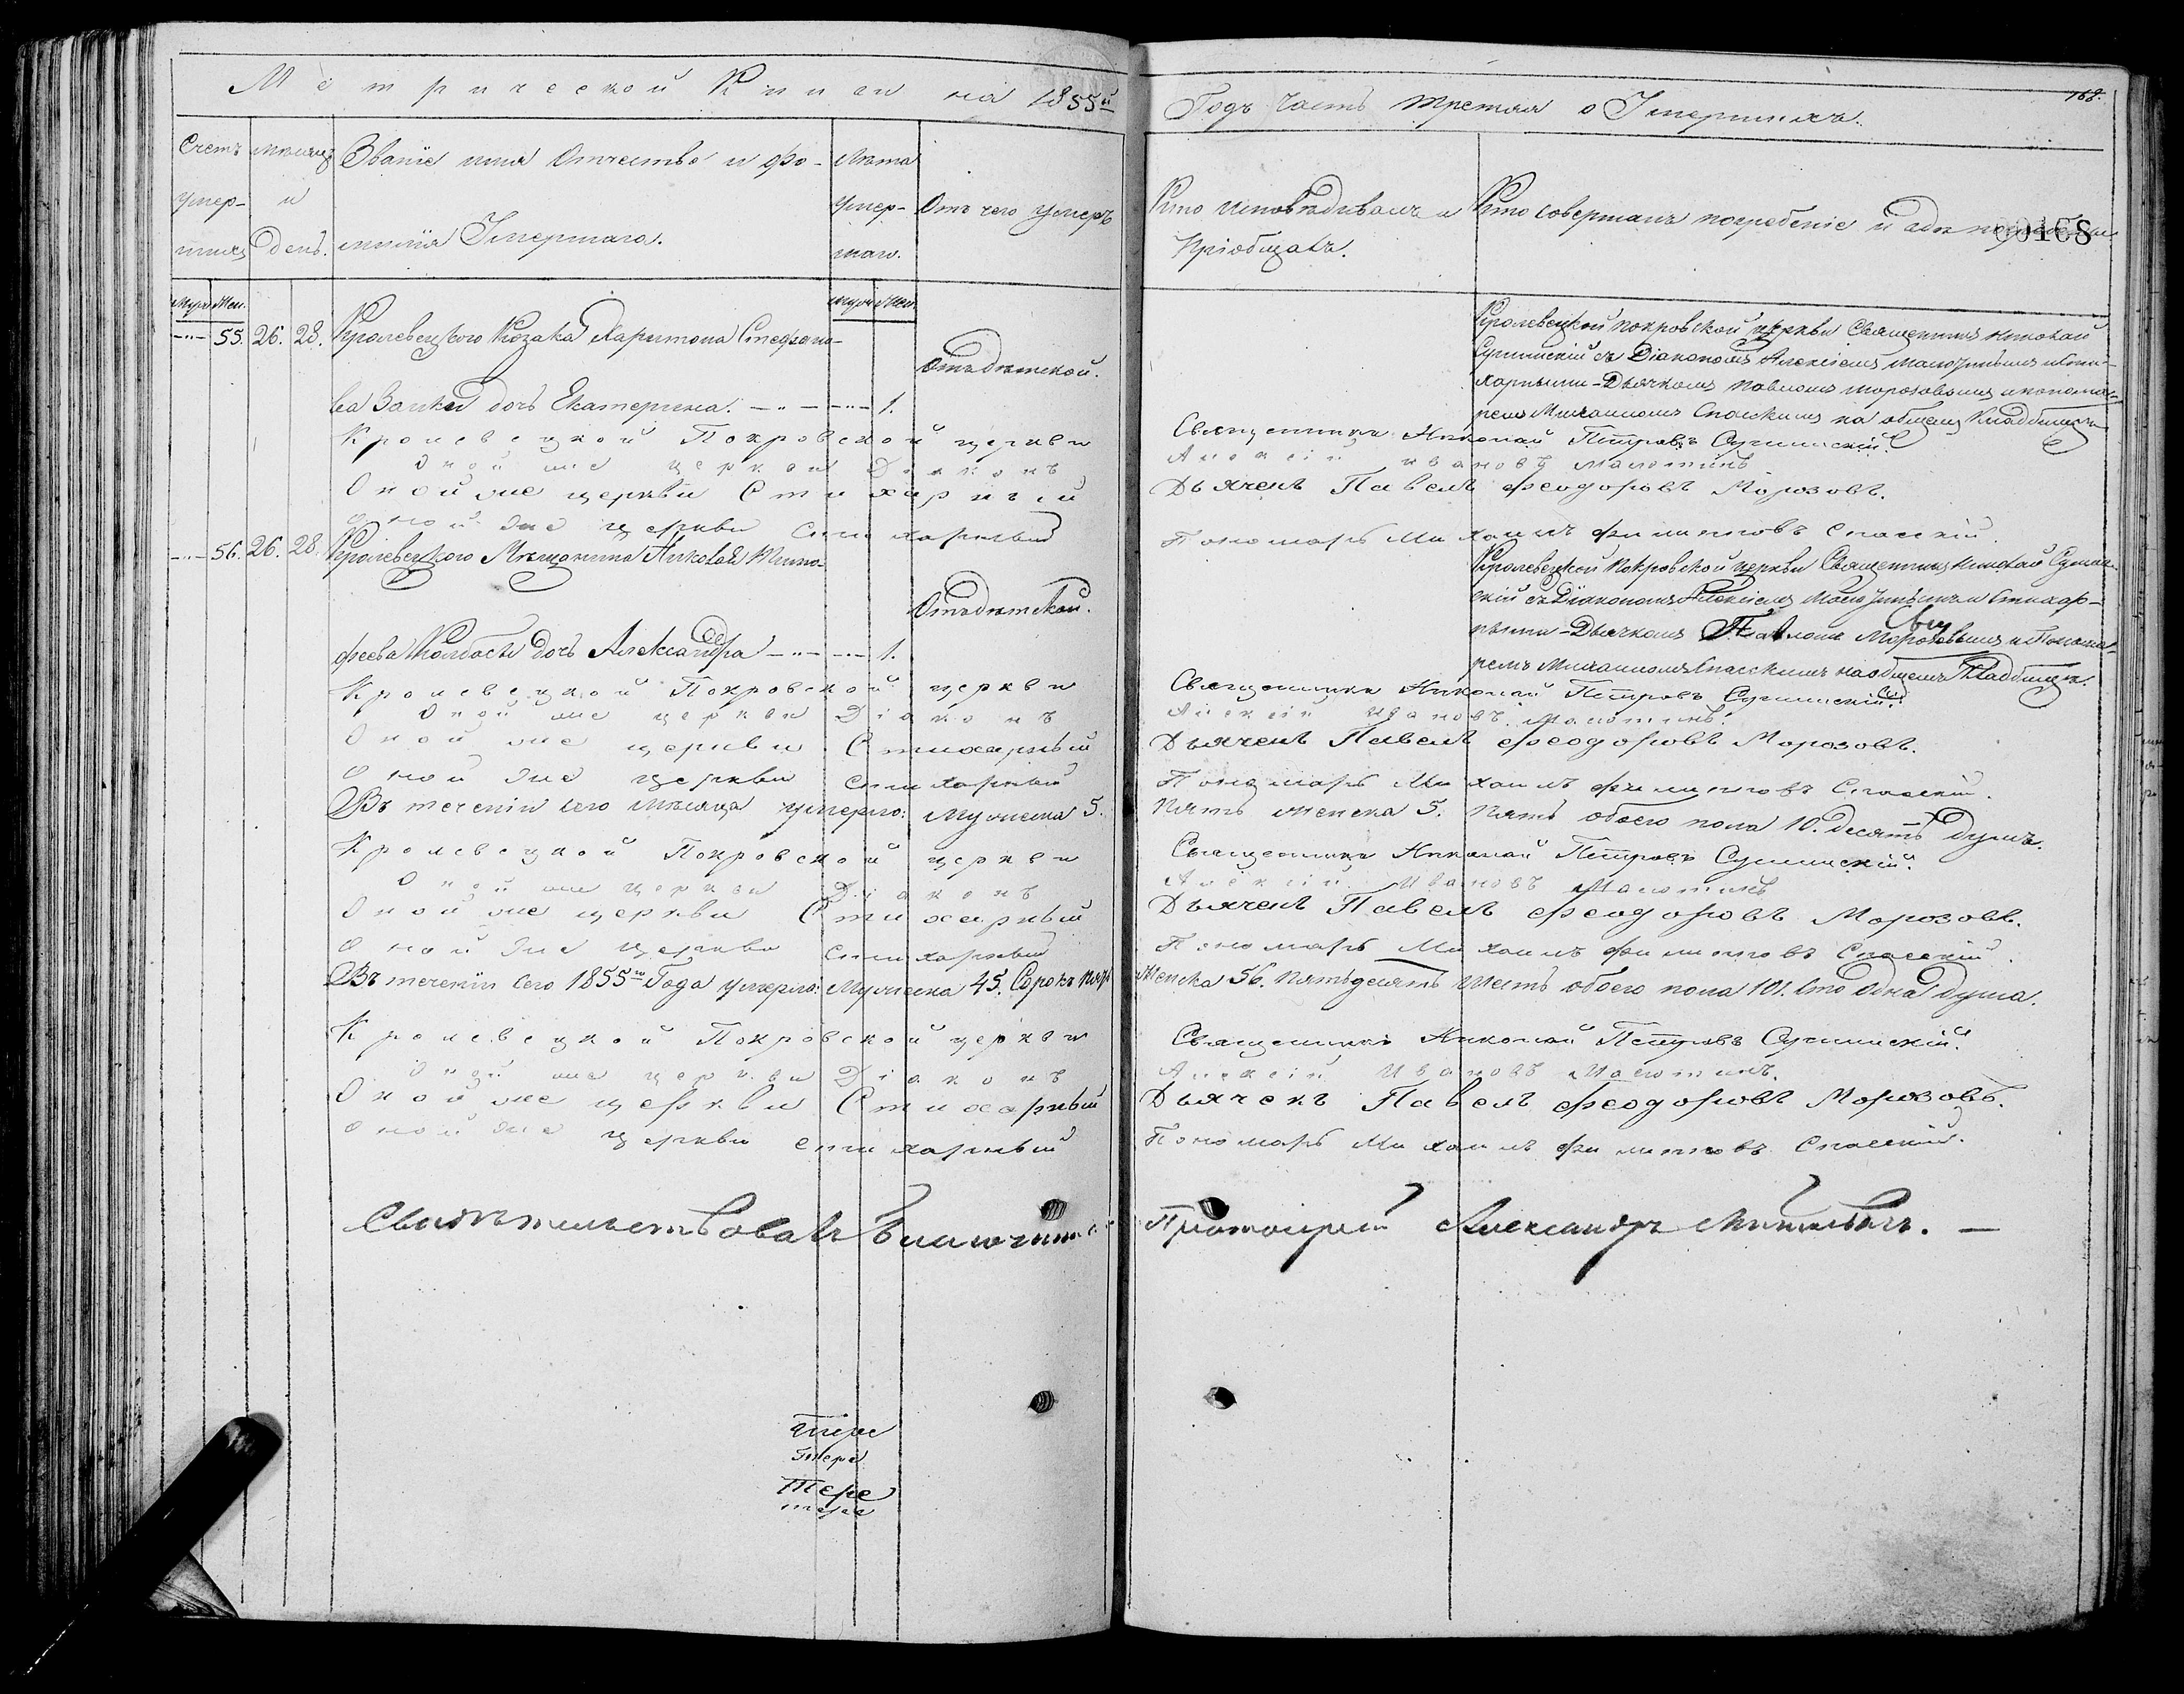 Метрической Книги на 1855й
Годъ Часть третяя о Умершихъ.
168.
00168
Счетъ умер-шихъ
Мѣсяцъ и день.
Званїе имя Отчество и фа-
милїя Умершаго.
Лѣта умер-шаго.
Отъ чего умеръ
Кто исповѣдывалъ и
Прїобщалъ.
Кто совершалъ погребенїе и гдѣ погребены
Муж. Жен.
Муж. Жен.
55. 26. 28. Кролевецкого Козака Харитона Стефано-
ва Заики дочь Екатерина. 1.
Отъ дѣтской.
Кролевецкой покровской церкви Священникъ Николай
Сушинскїй съ Дїакономъ Алексїемъ Малютинымъ и Сти-
харными - Дьячкомъ Павломъ Морозовымъ и понома-
ремъ Михаиломъ Спаскимъ на общемъ Кладбищѣ
Кролевецкой Покровской церкви Священникъ Николай Петровъ Сушинскій.
Оной же церкви Діаконъ Алексій Ивановъ Малютинъ
Оной же церкви Стихарный Дьячекъ Павелъ Феодоровъ Морозовъ.
Оной же церкви стихарный Пономарь Михаилъ Филиповъ Спасскій.
56. 26. 28. Кролевецкого Мѣщанина Николая Тимо-
феева Колбасы дочь Александра 1.
Отъ дѣтской.
Кролевецкой Покровской церкви Священникъ Николай Сушин-
скїй съ Дїакономъ Алексїемъ Малютинымъ и Стихар-
ными - Дьячкомъ Павломъ Морозовымъ и Понома-
ремъ Михаиломъ Спасскимъ на общемъ Кладбищѣ.
Кролевецкой Покровской церкви Священникъ Николай Петровъ Сушинскій.
Оной же церкви Діаконъ Алексій Ивановъ Малютинъ.
Оной же церкви Стихарный Дьячекъ Павелъ Феодоровъ Морозовъ.
Оной же церкви стихарный Пономарь Михаилъ Филиповъ Спасскій.
Въ теченїи сего Мѣсяца умерло: Мужеска 5. Пять женска 5. Пять обоего пола 10. Десять душъ.
Кролевецкой Покровской церкви Священникъ Николай Петровъ Сушинскій.
Оной же церкви Діаконъ Алексій Ивановъ Малютинъ
Оной же церкви Стихарный Дьячекъ Павелъ Феодоровъ Морозовъ.
Оной же церкви стихарный Пономарь Михаилъ Филиповъ Спасскій.
Въ теченїи сего 1855го Года умерло: Мужеска 45. Сорокъ пять Женска 56. Пятьдесятъ Шесть обоего пола 101. Сто Одна душа.
Кролевецкой Покровской церкви Священникъ Николай Петровъ Сушинскій.
Оной же церкви Діаконъ Алексій Ивановъ Малютинъ.
Оной же церкви Стихарный Дьячекъ Павелъ Феодоровъ Морозовъ.
Оной же церкви стихарный Пономарь Михаилъ Филиповъ Спасскій.
Свидѣтельствовалъ Благочинный Протоіерей Александръ
Тере